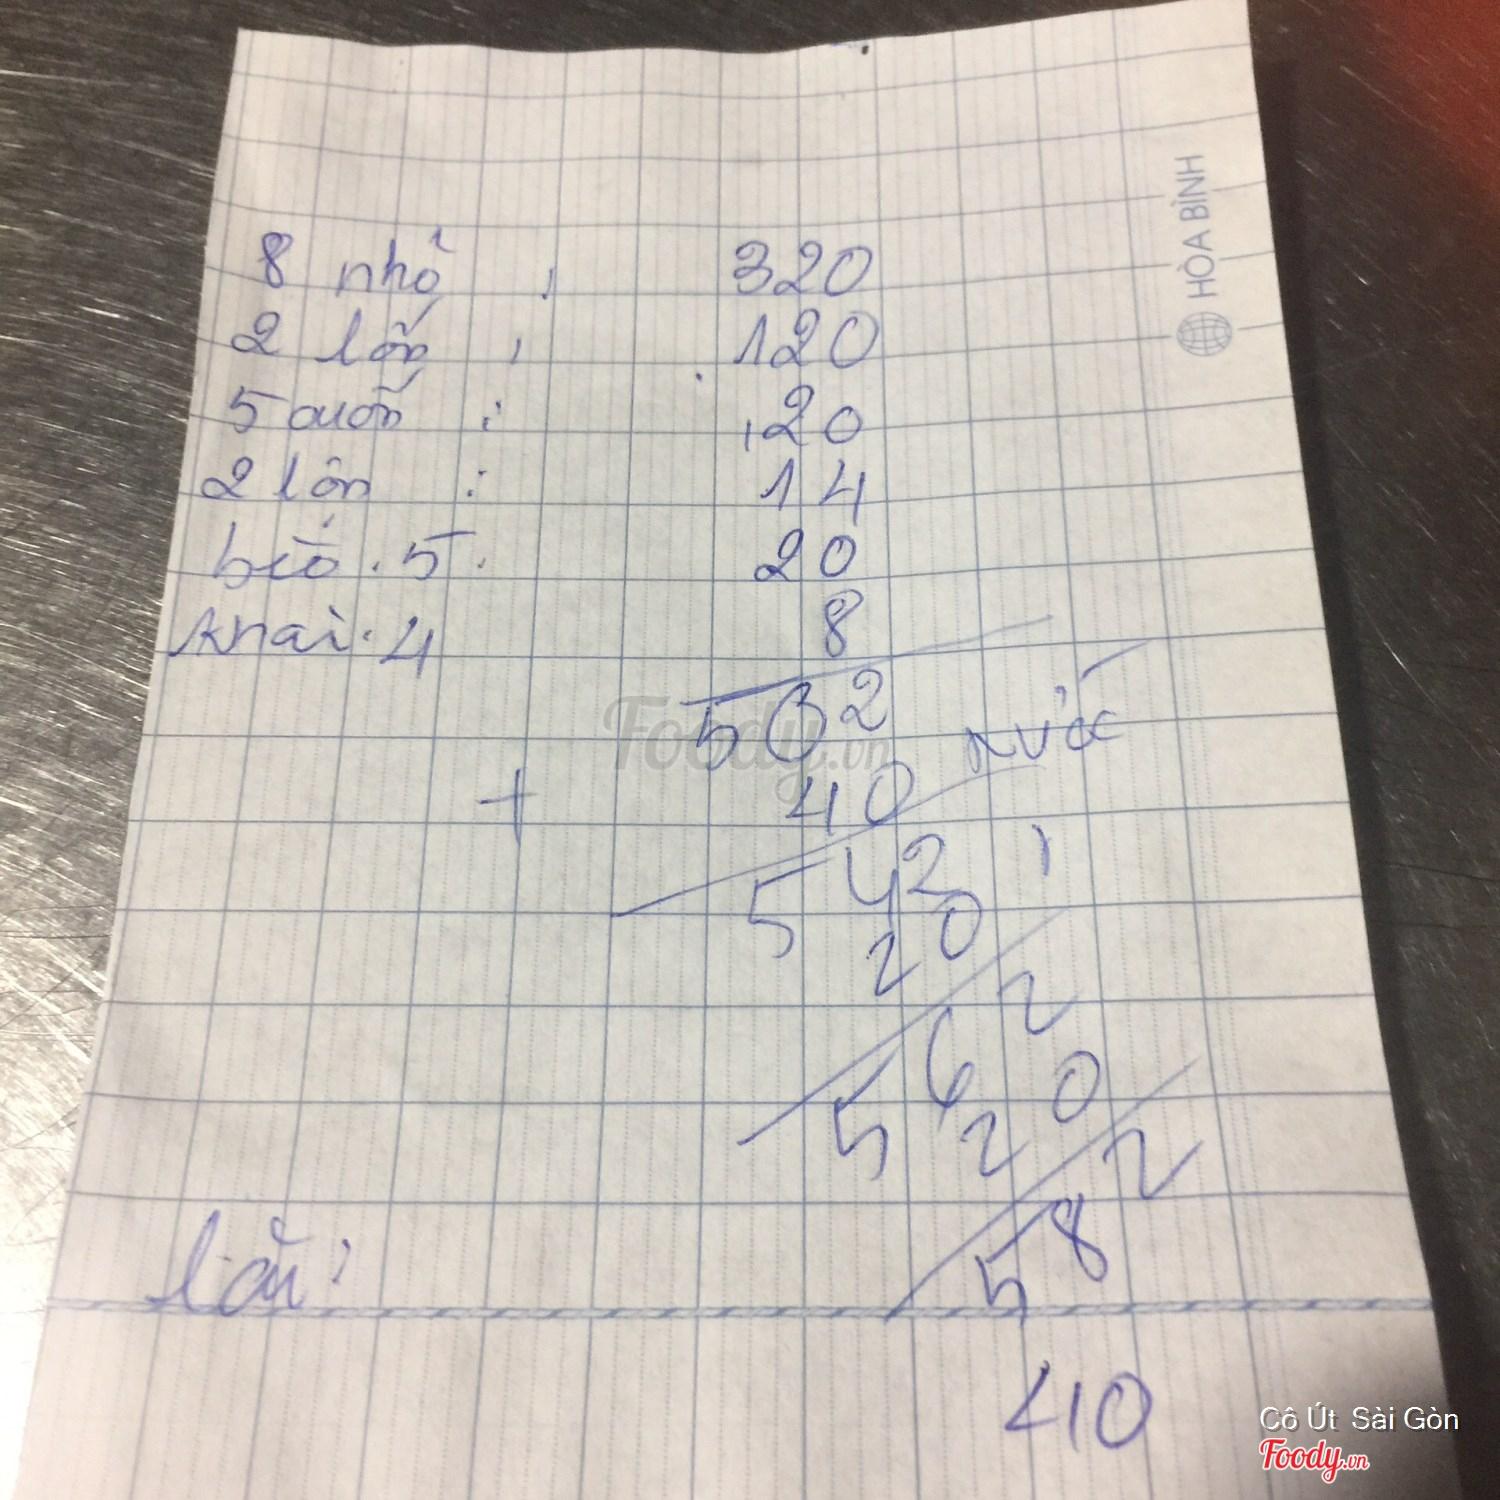 8 nhỏ : 320
2 lớn : 120
5 cuốn : 20
2 lớn : 14
bèo . 5 . 20
khai . 4 8
502
+ 40 nước
542
20
562
20
582
lẩu :
40
HÒA BÌNH
Foody.vn
Cô Út Sài Gòn
Foody.vn